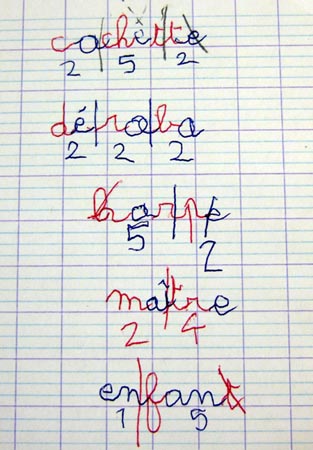 cachette
2 5 2
déroba
2 2 2
harpe
5 2
maître
2 4
enfant
1 5